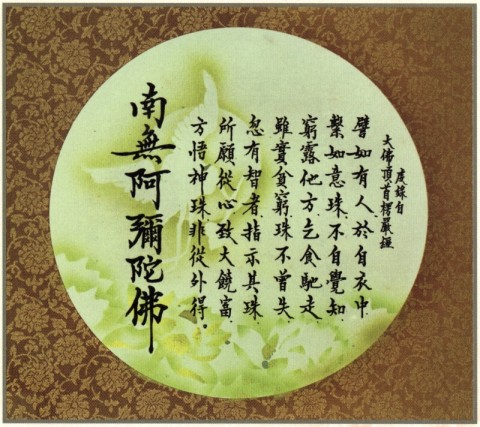 虔錄自
大佛頂首楞嚴經
譬如有人於自衣中
繫如意珠不自覺知
窮露他方乞食馳走
雖實貧窮珠不曾失
忽有智者指示其珠
所願從心致大饒富
方悟神珠非從外得
南無阿彌陀佛